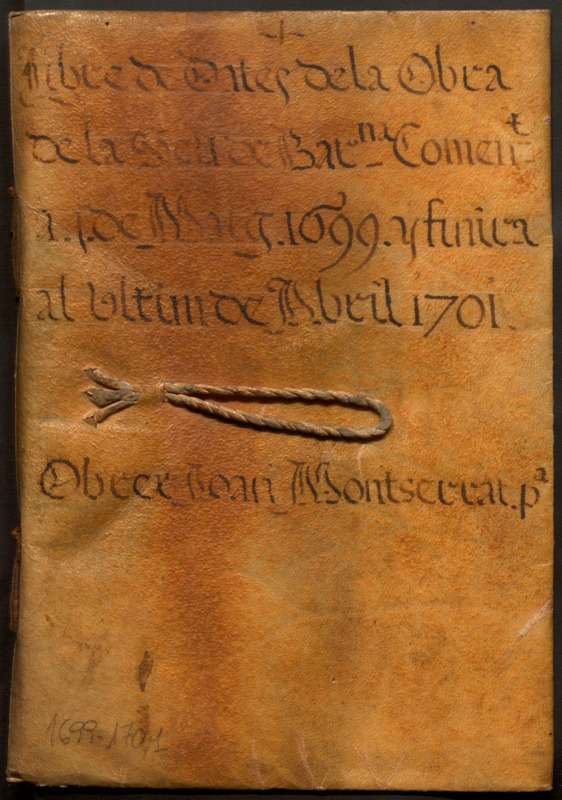 Llibre de Ontes de la Obra
de la Seu de Bar.na Comen.t
a .1. de Maig .1699. y finira
al Ultim de Abril 1701.
Obrer Joan Montserrat. p.a
1699-1701